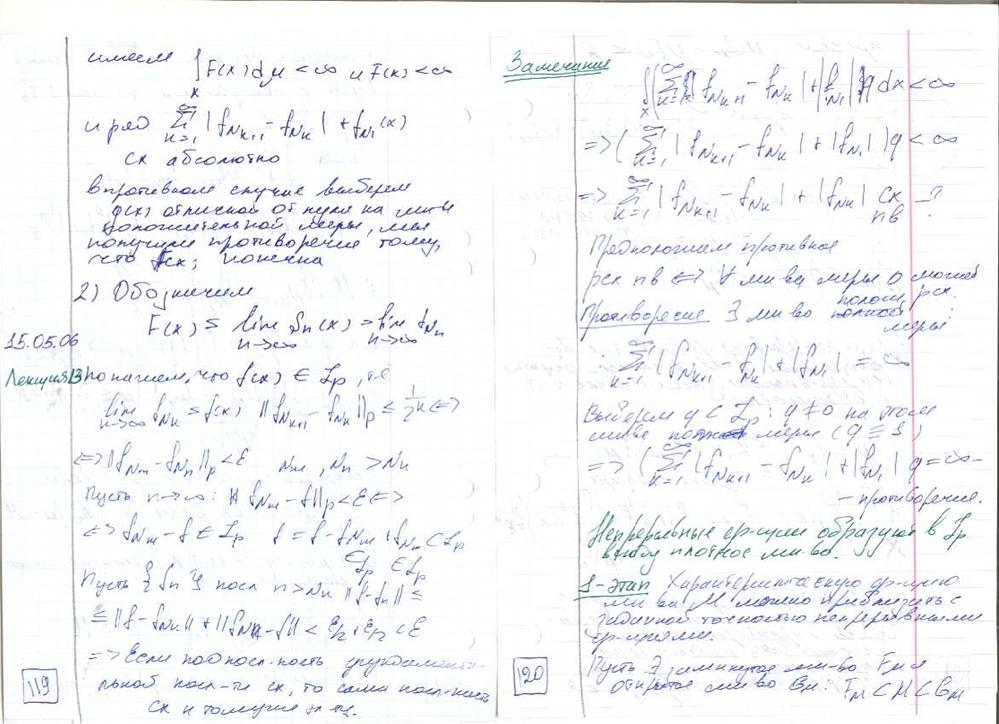 имеем ∫_X F(x)dμ < ∞ и F(x) < ∞
и ряд ∑_{k=1}^∞ |f_{N_{k+1}} - f_{N_k}| + f_{N_1}(x)
сх абсолютно
в противном случае выберем
g(x) отличной от нуля на мн-ве
положительной меры, мы
получим противоречие тому,
что ∫ сх; конечна
2) Обозначим
F(x) = lim_{n→∞} S_n(x) = lim_{n→∞} f_{N_n}
15.05.06
Лекция 13
покажем, что f(x) ∈ L_p, т.е
lim_{n→∞} f_{N_k} = f(x) ||f_{N_{k+1}} - f_{N_k}||_p ≤ 1/2^k <=>
<=> ||f_{N_m} - f_{N_n}||_p < ε N_m, N_n > N_k
Пусть n→∞: ||f_{N_m} - f||_p < ε <=>
<=> f_{N_m} - f ∈ L_p f = f - f_{N_m} + f_{N_m} ⊂ L_p
∈L_p ∈L_p
Пусть {f_n} посл n > N_k ||f - f_n|| ≤
≤ ||f - f_{N_k}|| + ||f_{N_k} - f|| < ε/2 + ε/2 < ε
=> Если подпосл-ность фундамента-
льной посл-ти сх, то сама посл-ность
сх к тому же
119
Замечание
∫_X (∑_{k=1}^∞ |f_{N_{k+1}} - f_{N_k}| + |f_{N_1}|)g dx < ∞
=> (∑_{k=1}^∞ |f_{N_{k+1}} - f_{N_k}| + |f_{N_1}|)g < ∞
=> ∑_{k=1}^∞ |f_{N_{k+1}} - f_{N_k}| + |f_{N_k}| сх пв - ?
Предположим противное
рсх пв <=> ∀ мн-ва меры 0 может
рсх.
Противоречие ∃ мн-во полож меры
∑_{k=1}^∞ |f_{N_{k+1}} - f_{N_k}| + |f_{N_1}| = ∞
Выберем g ⊂ L_p: g ≠ 0 на этом
мн-ве меры (g ≡ 1)
=> (∑_{k=1}^∞ |f_{N_{k+1}} - f_{N_k}| + |f_{N_1}| g = ∞ -
- противоречие.
Непрерывные ф-ции образуют в L_p
всюду плотное мн-во.
1-этап Характеристическую ф-цию
мн-ва M можно приблизить с
заданной точностью непрерывными
ф-циями.
Пусть ∃ замкнутое мн-во F_M и
открытое мн-во G_M: F_M ⊂ M ⊂ G_M
120